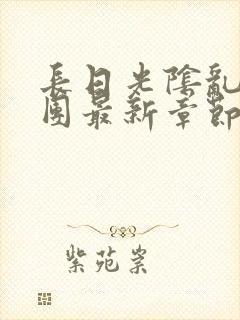 長日光陰亂
團最新章節
紫苑崇